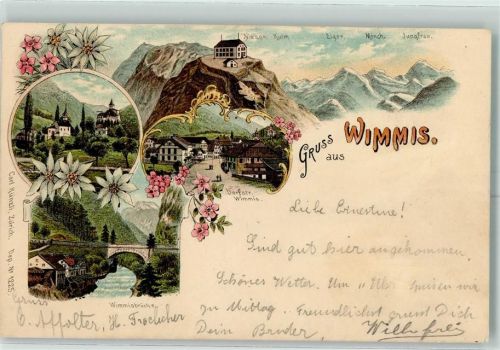 Niesen Kulm
Eiger. Mönch. Jungfrau.
Gruss aus Wimmis.
Dorfstr.
Wimmis.
Wimmisbrücke.
Carl Künzli, Zürich.
Liebe Ernestine!
Sind gut hier angekommen.
Schönes Wetter. Um Uhr speisen wir
zu Mittag. Freundlichst grüsst Dich
Dein Bruder,
Gruss
E. Affolter, H. Froelicher